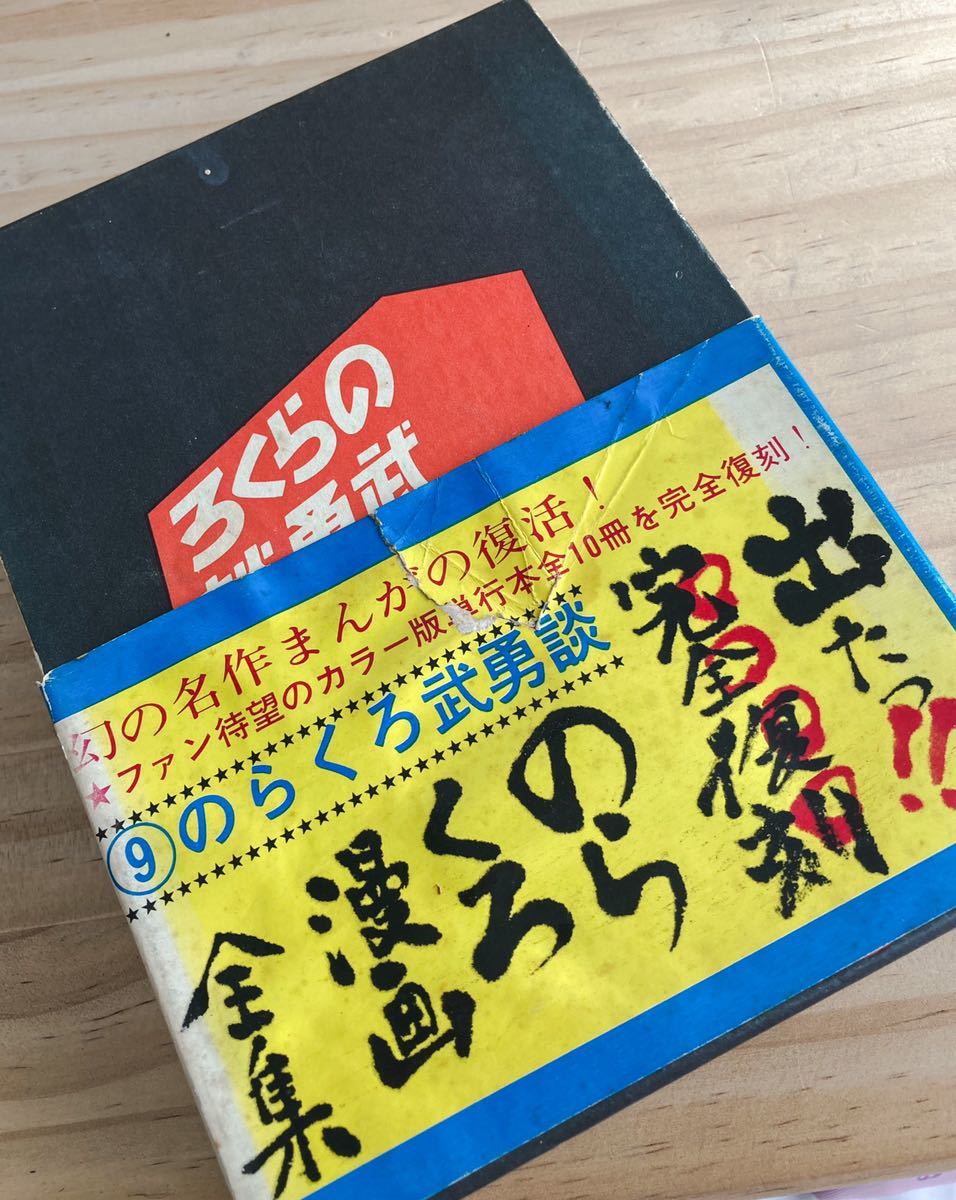 のらくろ
武勇
幻の名作まんがの復活！
★ファン待望のカラー版単行本全10冊を完全復刻！
⑨のらくろ武勇談
出たっ!!
完全復刻
のらくろ
漫画
全集